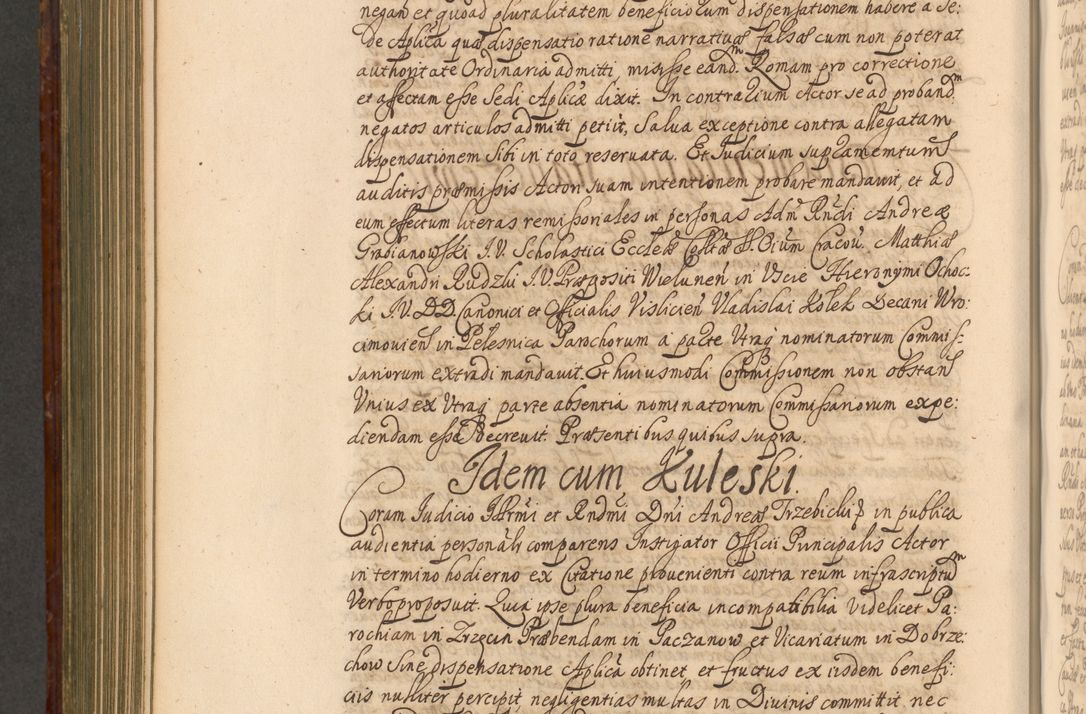 negan et quoad pluralitatem beneficiorum dispensationem habere a Se:
de Aplica quæ dispensatio ratione narrativæ falsæ cum non poterat
authoritate Ordinaria admitti, misisse eandm. Romam pro correctione
et affectam esse Sedi Aplicæ dixit. In contrarium Actor se ad probandm
negatos articulos admitti petiit, Salua exceptione contra allegatam
dispensationem Sibi in toto reseruata. Et Iudicium
auditis præmissis Actori suam intentionem probare mandauit, et ad
eum effectum literas remissoriales in personas Adm Rndi Andreæ
Grabianowski I.V. Scholastici Eccleæ SS. Oium Cracou. Matthiæ
Alexandri Rudzki I.V. Præpositi Wieluneñ in Vicie Hieronymi Ochoc:
ki I.V.D.D. Canonici et Officialis Vislicieñ Vladislai Kolek Decani Wro:
cimouieñ in Pelesnica Parochorum a parte Utraq nominatorum Commis:
sariorum extradi mandauit. Et huiusmodi Commissionem non obstañ
Vnius ex Utraq parte absentia nominatorum Commissariorum expe:
diendam esse Decreuit. Præsentibus quibus supra.
Idem cum Kuleski.
Coram Iudicio Illrmi et Rndmi Dni Andreæ Trzebicki in publica
audientia personalr comparens Instigator Officii Principalis Actor
in termino hodierno ex Citatione proueniente contra reum infrascriptum
Verbo proposuit. Quia ipse plura beneficia incompatibilia Videlicet Pa:
rochiam in Zrzecin Præbendam in Paczanow et Vicariatum in Dobrze:
chow Sine dispensatione Aplica obtinet et fructus ex iisdem benefi:
ciis nulliter percipit, negligentias multas in Diuinis committit nec